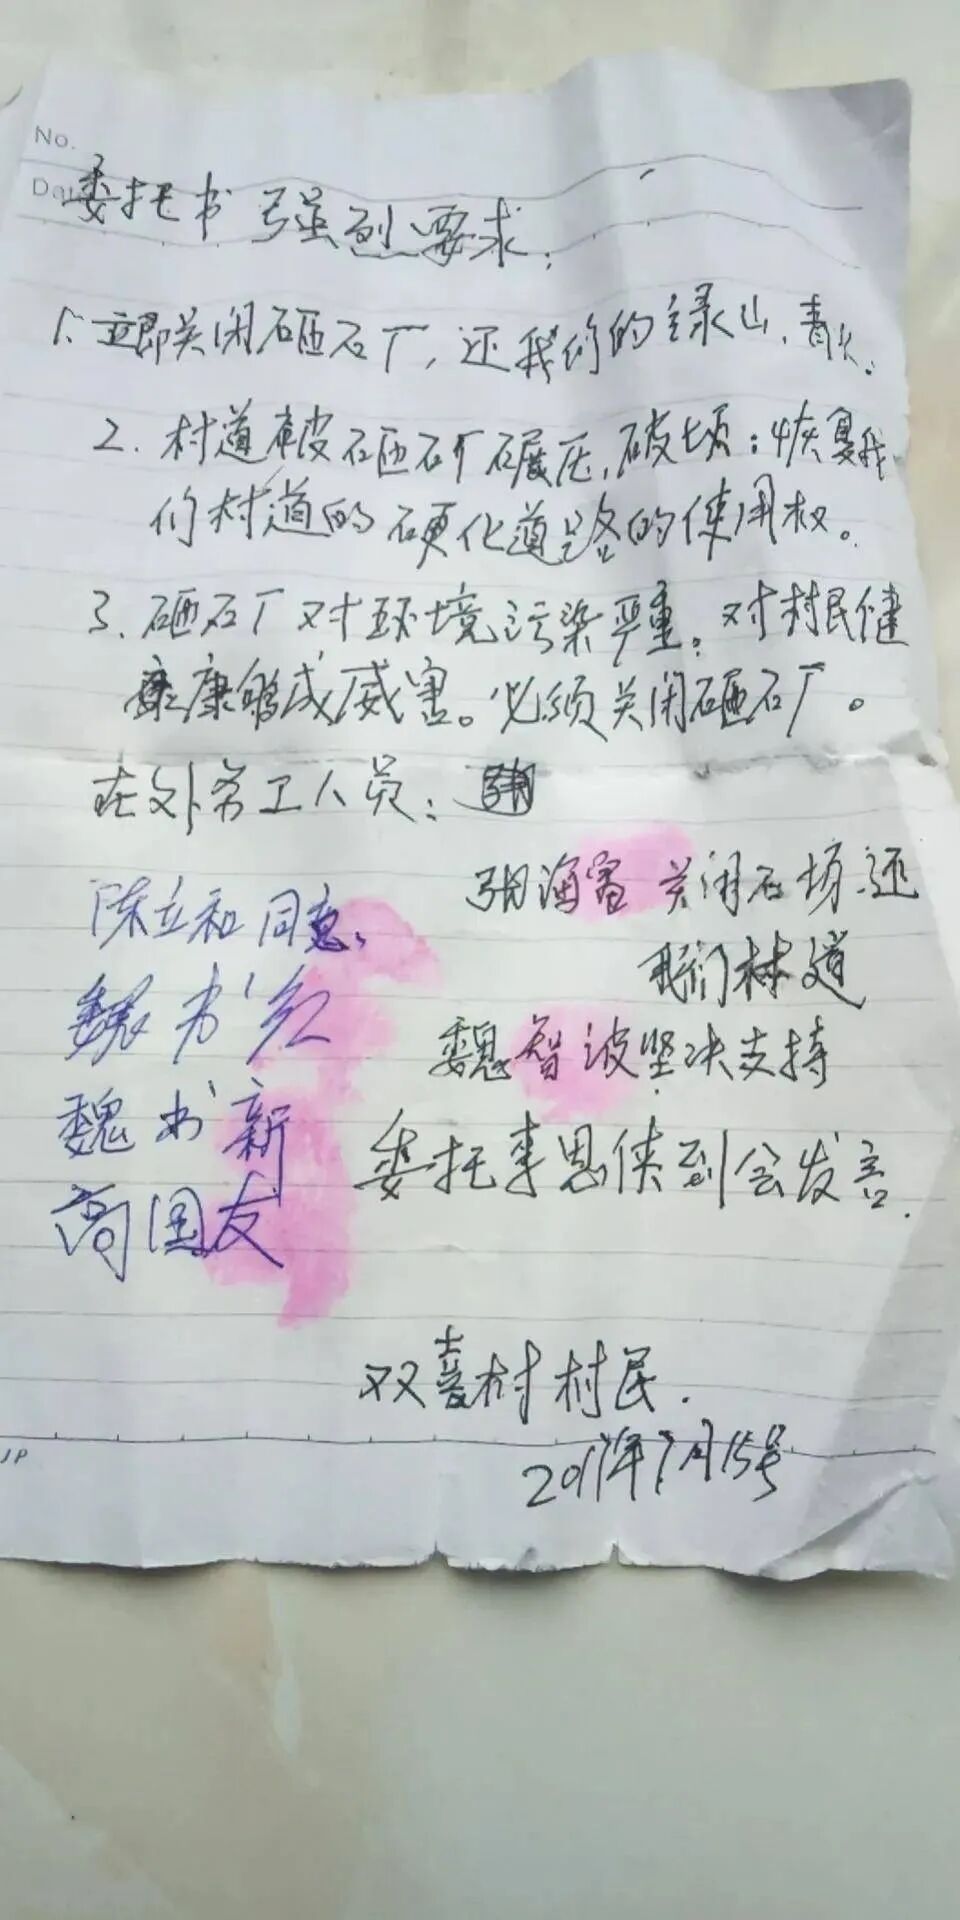 No.
Da
委托书 强烈要求:
1. 立即关闭砸石厂,还我们的绿山、青水.
2. 村道被砸石厂碾压,破坏;恢复我
们村道的硬化道路的使用权。
3. 砸石厂对环境污染严重。对村民健
康 成威害。必须关闭砸石厂。
在外务工人员:
张海 关闭石场.还
我们林道
陈立和 同意、
魏书红
魏智波坚决支持
魏书新
委托李恩侠到会发言.
高国友
双喜村村民.
2017年7月15号